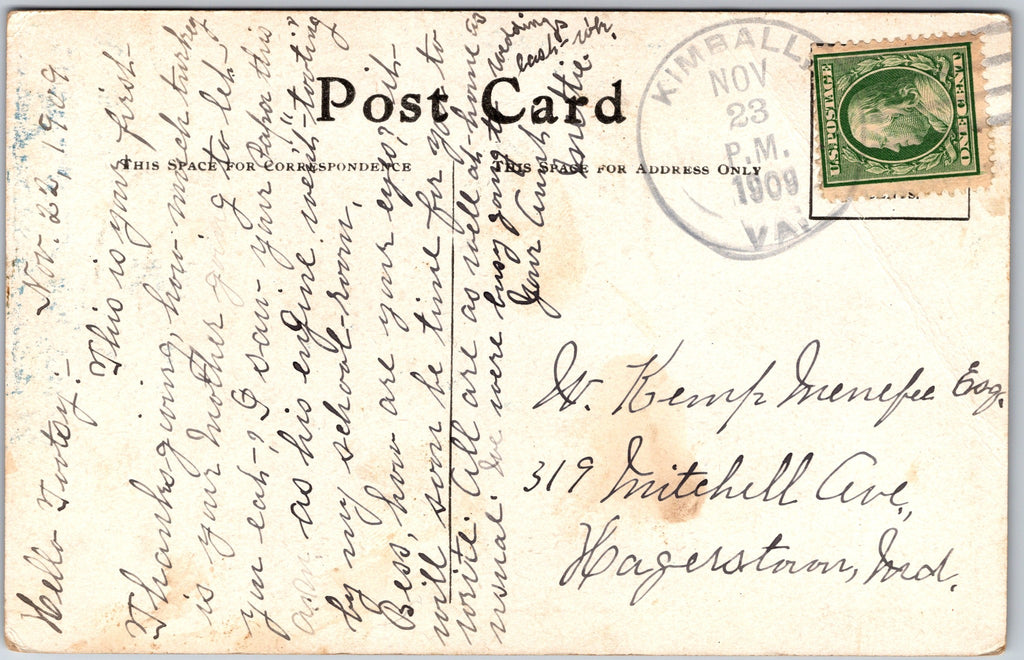 Post Card
THIS SPACE FOR CORRESPONDENCE
THIS SPACE FOR ADDRESS ONLY
KIMBALL,
NOV
23
P.M.
1909
VA.
U.S. POSTAGE
ONE CENT
W. Kemp Menefee Esq.
319 Mitchell Ave.,
Hagerstown, Md.
Nov. 22, 1909
Hello Tootsy:-
This is your first
Thanksgiving, how much turkey
is your Mother going to let
you eat? I saw your Papa this
as his engine went "tooting"
by my school-room.
Bess, how are your eyes? it
will soon be time for you to
write. All are as well at home as
usual. We were busy going to
wedding
last wk.
Your Aunt